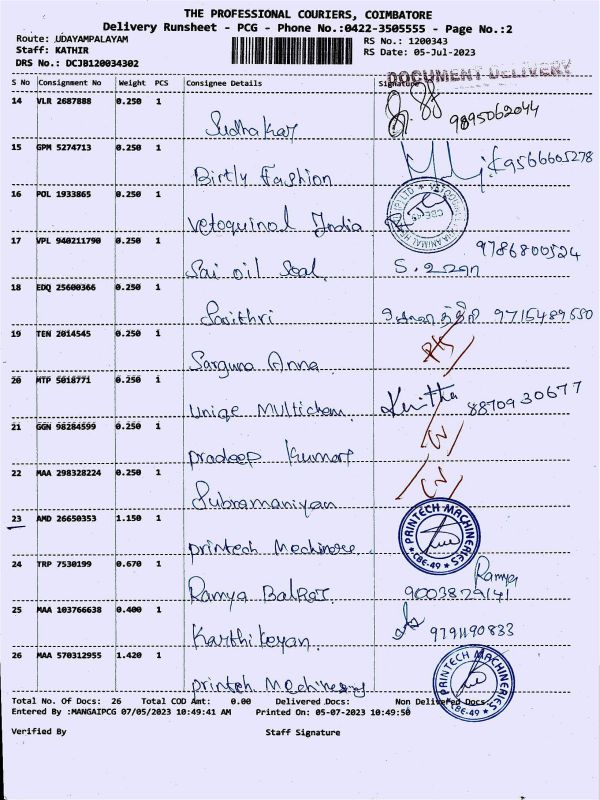 THE PROFESSIONAL COURIERS, COIMBATORE
Delivery Runsheet - PCG - Phone No.:0422-3505555 - Page No.:2
Route: UDAYAMPALAYAM RS No.: 1200343
Staff: KATHIR RS Date: 05-Jul-2023
DRS No.: DCJB120034302
DOCUMENT DELIVERY
S No Consignment No Weight PCS Consignee Details Signature
14 VLR 2687888 0.250 1
Sudhakar 9895062044
15 GPM 5274713 0.250 1
Birtly Fashion 9566605278
16 POL 1933865 0.250 1
Vetoquinol India
17 VPL 940211790 0.250 1 9786800524
Sai oil Seal
18 EDQ 25600366 0.250 1
Savithri 9715489650
19 TEN 2014545 0.250 1
Sarguna Anna
20 MTP 5018771 0.250 1
Uniqe Multichem 8870930677
21 GGN 98284599 0.250 1
Pradeep Kumar
22 MAA 298328224 0.250 1
Subramaniyan
23 AMD 26650353 1.150 1
Printech Mechinere PRINTECH MACHINERIES CBE-49
24 TRP 7530199 0.670 1 Ramya
Ramya 9003829141
25 MAA 103766638 0.400 1
Karthikeyan 9791190833
26 MAA 570312955 1.420 1
Printech PRINTECH MACHINERIES CBE-49
Total No. Of Docs: 26 Total COD Amt: 0.00 Delivered Docs: Non Delivered Docs:
Entered By :MANGAIPCG 07/05/2023 10:49:41 AM Printed On: 05-07-2023 10:49:50
Verified By Staff Signature